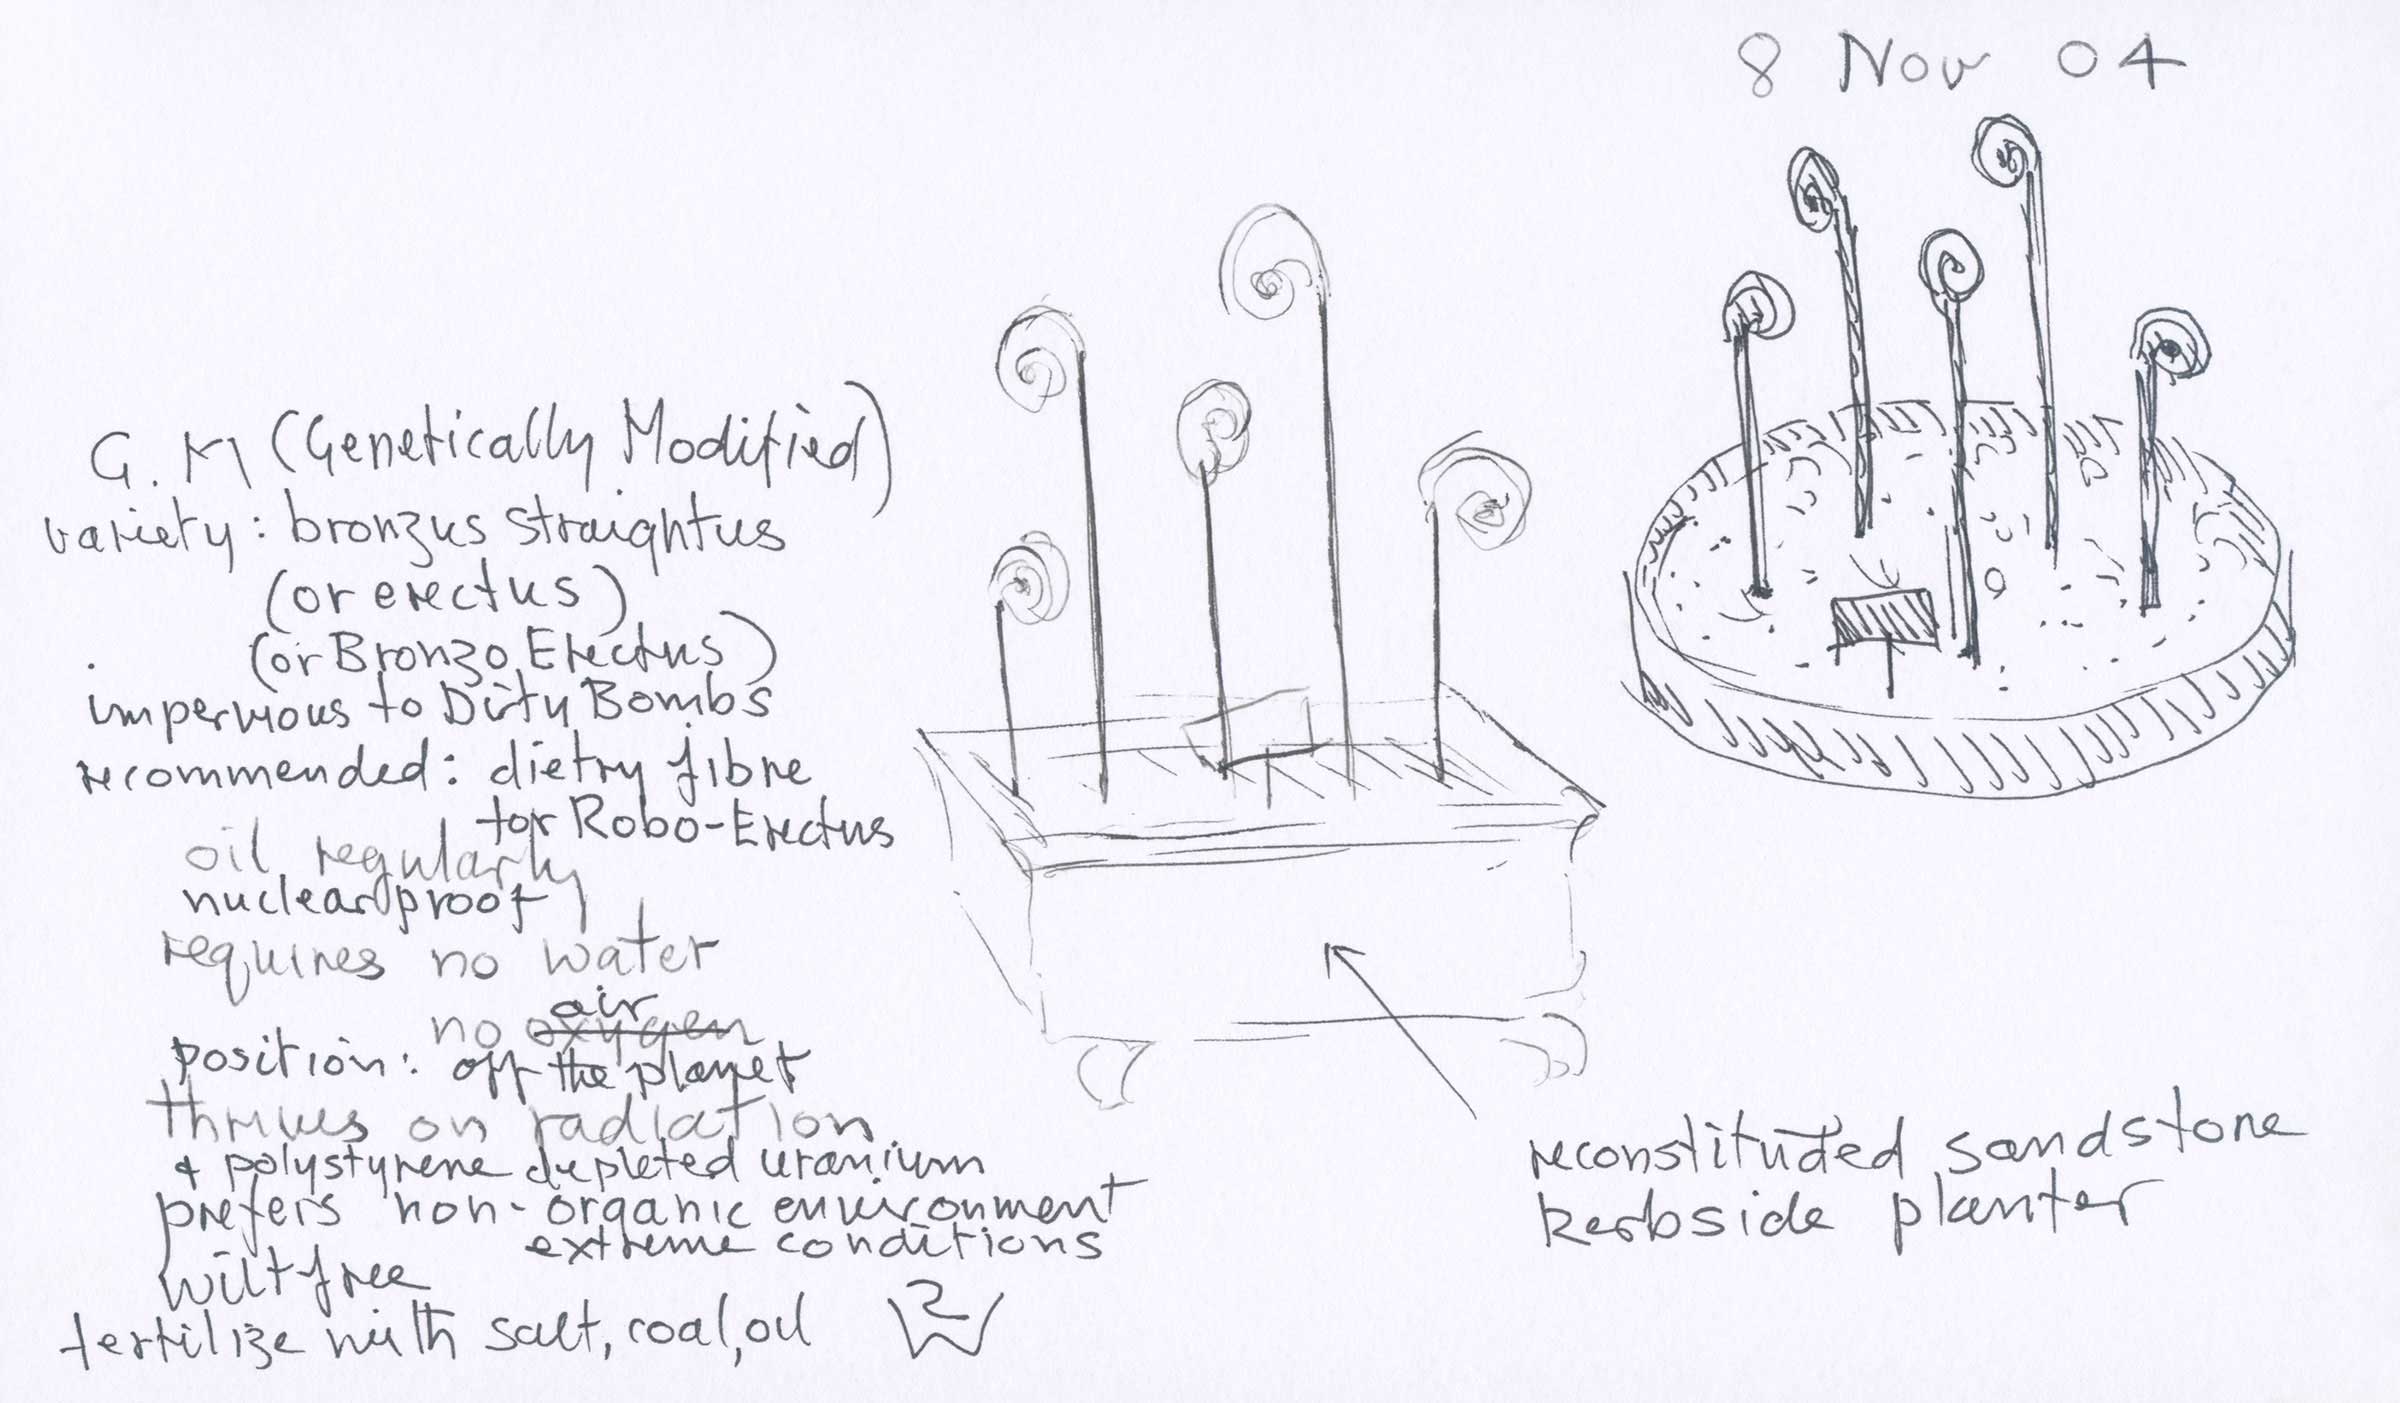 8 Nov 04
G.M (Genetically Modified)
variety: bronzus straightus
(or erectus)
(or Bronzo Erectus)
impervious to Dirty Bombs
recommended: dietry fibre
for Robo-Erectus
oil regularly
nuclear proof
requires no water
air
no oxygen
position: off the planet
thrives on radiation
& polystyrene depleted uranium
prefers non-organic environment
extreme conditions
wilt free
fertilize with salt, coal, oil
reconstituted sandstone
kerbside planter